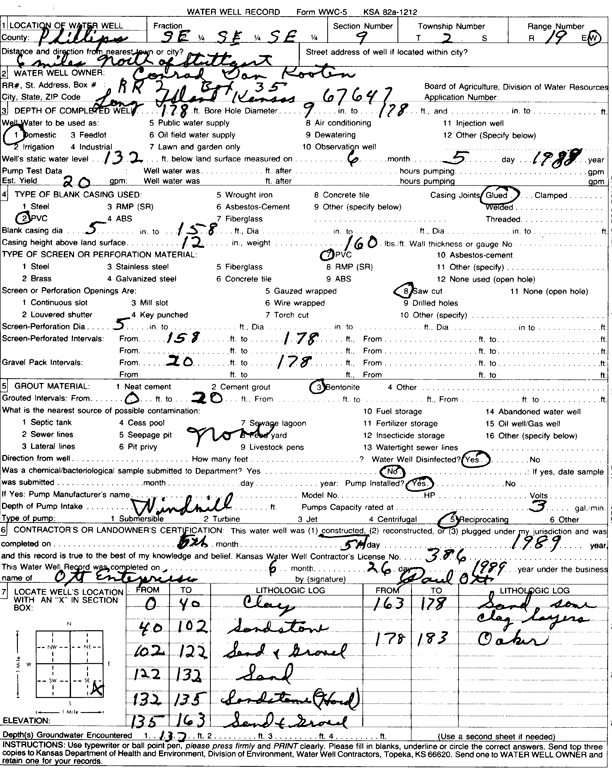 WATER WELL RECORD Form WWC-5 KSA 82a-1212
1 LOCATION OF WATER WELL Fraction Section Number Township Number Range Number
County: Phillips SE ¼ SE ¼ SE ¼ 9 T 2 S R 19 E/W
Distance and direction from nearest town or city? Street address of well if located within city?
6 miles north of Stuttgart
2 WATER WELL OWNER: Conrad Van Kooten
RR#, St. Address, Box # RR 2 Box 35 Board of Agriculture, Division of Water Resources
City, State, ZIP Code Long Island Kansas 67647 Application Number:
3 DEPTH OF COMPLETED WELL 178 ft. Bore Hole Diameter 9 in. to 178 ft., and in. to ft.
Well Water to be used as: 5 Public water supply 8 Air conditioning 11 Injection well
1 Domestic 3 Feedlot 6 Oil field water supply 9 Dewatering 12 Other (Specify below)
2 Irrigation 4 Industrial 7 Lawn and garden only 10 Observation well
Well's static water level 132 ft. below land surface measured on 6 month 5 day 1988 year
Pump Test Data Well water was ft. after hours pumping gpm
Est. Yield 20 gpm: Well water was ft. after hours pumping gpm
4 TYPE OF BLANK CASING USED: 5 Wrought iron 8 Concrete tile Casing Joints: Glued Clamped
1 Steel 3 RMP (SR) 6 Asbestos-Cement 9 Other (specify below) Welded
2 PVC 4 ABS 7 Fiberglass Threaded.
Blank casing dia 5 in. to 158 ft., Dia in. to ft., Dia in. to ft.
Casing height above land surface 12 in., weight 160 lbs./ft. Wall thickness or gauge No
TYPE OF SCREEN OR PERFORATION MATERIAL: 7 PVC 10 Asbestos-cement
1 Steel 3 Stainless steel 5 Fiberglass 8 RMP (SR) 11 Other (specify)
2 Brass 4 Galvanized steel 6 Concrete tile 9 ABS 12 None used (open hole)
Screen or Perforation Openings Are: 5 Gauzed wrapped 8 Saw cut 11 None (open hole)
1 Continuous slot 3 Mill slot 6 Wire wrapped 9 Drilled holes
2 Louvered shutter 4 Key punched 7 Torch cut 10 Other (specify)
Screen-Perforation Dia 5 in. to ft., Dia in. to ft., Dia in. to ft.
Screen-Perforated Intervals: From 158 ft. to 178 ft., From ft. to ft.
From ft. to ft., From ft. to ft.
Gravel Pack Intervals: From 20 ft. to 178 ft., From ft. to ft.
From ft. to ft., From ft. to ft.
5 GROUT MATERIAL: 1 Neat cement 2 Cement grout 3 Bentonite 4 Other
Grouted Intervals: From 0 ft. to 20 ft., From ft. to ft., From ft. to ft.
What is the nearest source of possible contamination: 10 Fuel storage 14 Abandoned water well
1 Septic tank 4 Cess pool 7 Sewage lagoon 11 Fertilizer storage 15 Oil well/Gas well
2 Sewer lines 5 Seepage pit 8 Feed yard 12 Insecticide storage 16 Other (specify below)
3 Lateral lines 6 Pit privy 9 Livestock pens 13 Watertight sewer lines
Direction from well How many feet ? Water Well Disinfected? Yes No
Was a chemical/bacteriological sample submitted to Department? Yes No If yes, date sample
was submitted month day year: Pump Installed? Yes. No
If Yes: Pump Manufacturer's name Windmill Model No. HP Volts
Depth of Pump Intake ft. Pumps Capacity rated at 3 gal./min.
Type of pump: 1 Submersible 2 Turbine 3 Jet 4 Centrifugal 5 Reciprocating 6 Other
6 CONTRACTOR'S OR LANDOWNER'S CERTIFICATION: This water well was (1) constructed, (2) reconstructed, or (3) plugged under my jurisdiction and was
completed on 6th month 5th day 1989 year
and this record is true to the best of my knowledge and belief. Kansas Water Well Contractor's License No. 386
This Water Well Record was completed on 6 month 26 day 1989 year under the business
name of Ott Enterprises by (signature) Paul Ott
7 LOCATE WELL'S LOCATION WITH AN "X" IN SECTION BOX:
FROM TO LITHOLOGIC LOG FROM TO LITHOLOGIC LOG
0 40 Clay 163 178 Sand some clay layers
40 102 Sandstone 178 183 Oaker
102 122 Sand & Gravel
122 132 Sand
132 135 Sandstone (Hard)
135 163 Sand & Gravel
N
NW NE
W E
SW SE
S
1 Mile
1 Mile
X
ELEVATION:
Depth(s) Groundwater Encountered 1. 132 ft. 2. ft. 3. ft. 4. ft. (Use a second sheet if needed)
INSTRUCTIONS: Use typewriter or ball point pen, please press firmly and PRINT clearly. Please fill in blanks, underline or circle the correct answers. Send top three
copies to Kansas Department of Health and Environment, Division of Environment, Water Well Contractors, Topeka, KS 66620. Send one to WATER WELL OWNER and
retain one for your records.